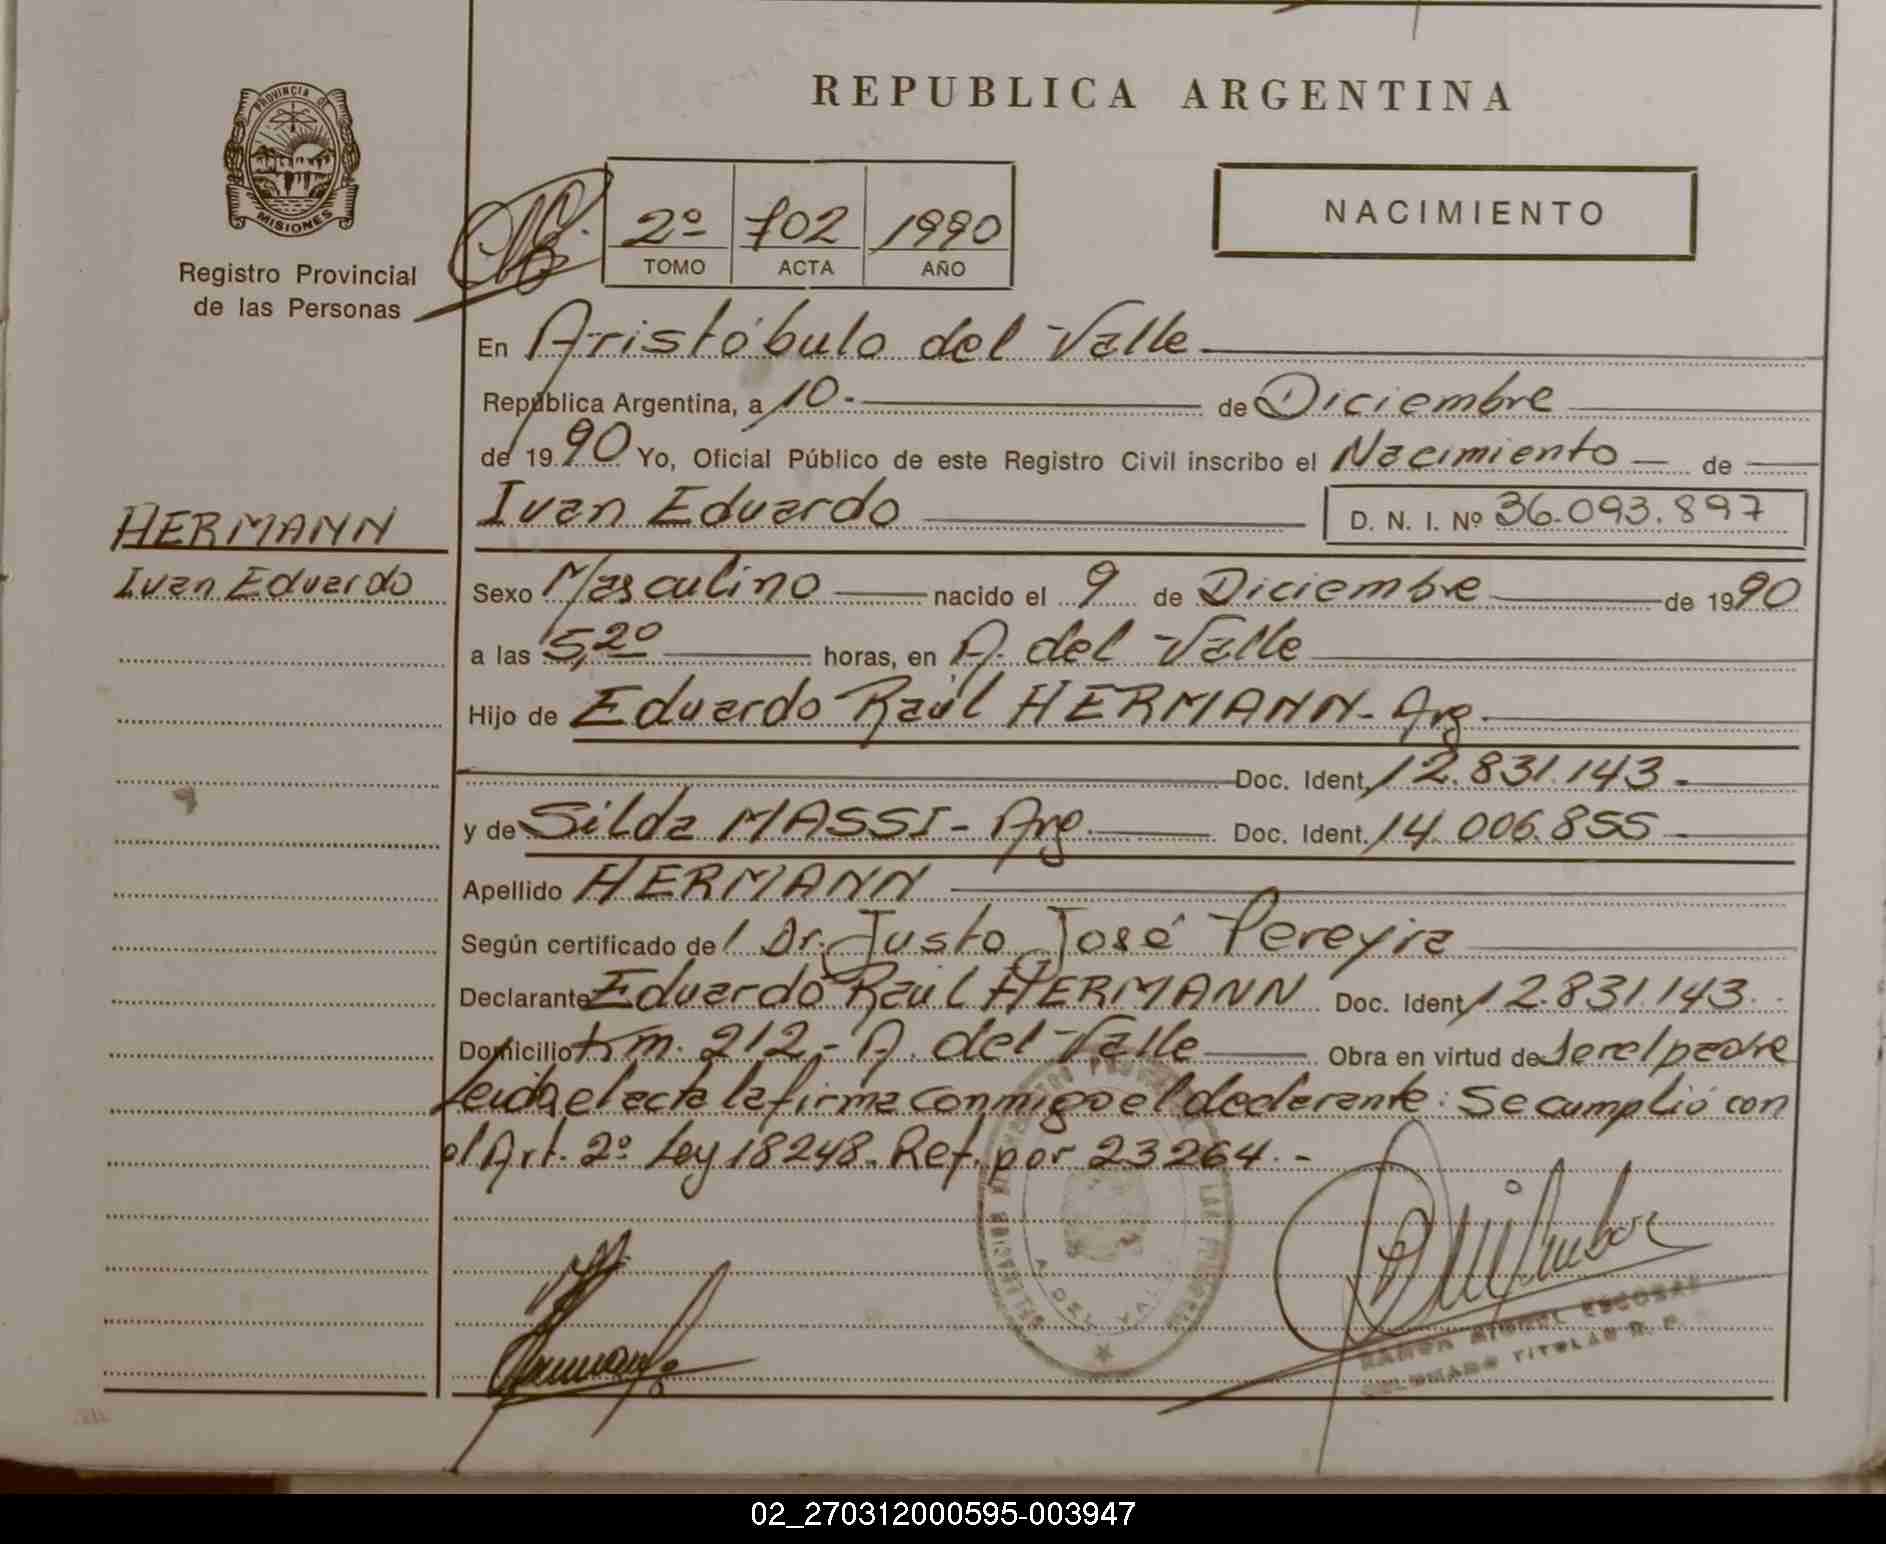 REPUBLICA ARGENTINA
PROVINCIA DE
MISIONES
Registro Provincial
de las Personas
2º 702 1990
TOMO ACTA AÑO
NACIMIENTO
En Aristóbulo del Valle
República Argentina, a 10.- de Diciembre
de 1990 Yo, Oficial Público de este Registro Civil inscribo el Nacimiento de
Ivan Eduardo D. N. I. Nº 36.093.897
HERMANN
Ivan Eduardo
Sexo Masculino nacido el 9 de Diciembre de 1990
a las 5,20 horas, en A. del Valle
Hijo de Eduardo Raúl HERMANN- Arg.
Doc. Ident. 12.831.143.-
y de Silda MASSI- Arg. Doc. Ident. 14.006.855
Apellido HERMANN
Según certificado del Dr. Justo José Pereyra
Declarante Eduardo Raúl HERMANN Doc. Ident. 12.831.143.
Domicilio Km. 212,- A. del Valle Obra en virtud de ser el padre
Leida el acta la firma conmigo el declarante: Se cumplió con
el Art. 2º Ley 18248. Ref. por 23264.-
A. DEL VALLE
RAMON MIGUEL ESCOBAR
TITULAR R. P.
02_270312000595-003947